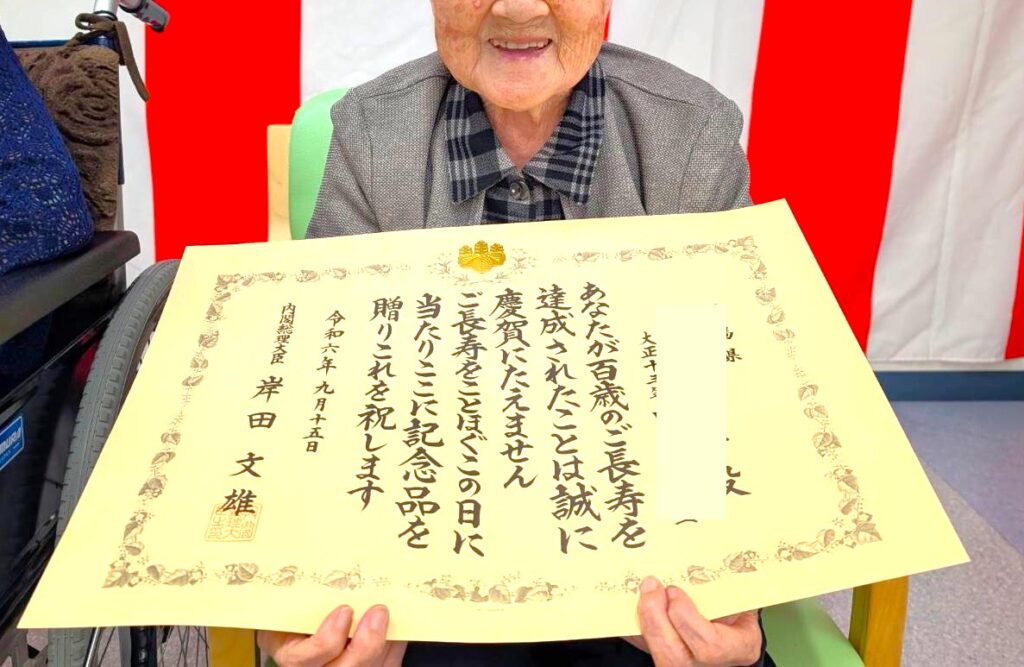 島県
殿
大正十三年
あなたが百歳のご長寿を
達成されたことは誠に
慶賀にたえません
ご長寿をことほぐこの日に
当たりここに記念品を
贈りこれを祝します
令和六年九月十五日
内閣総理大臣 岸田文雄